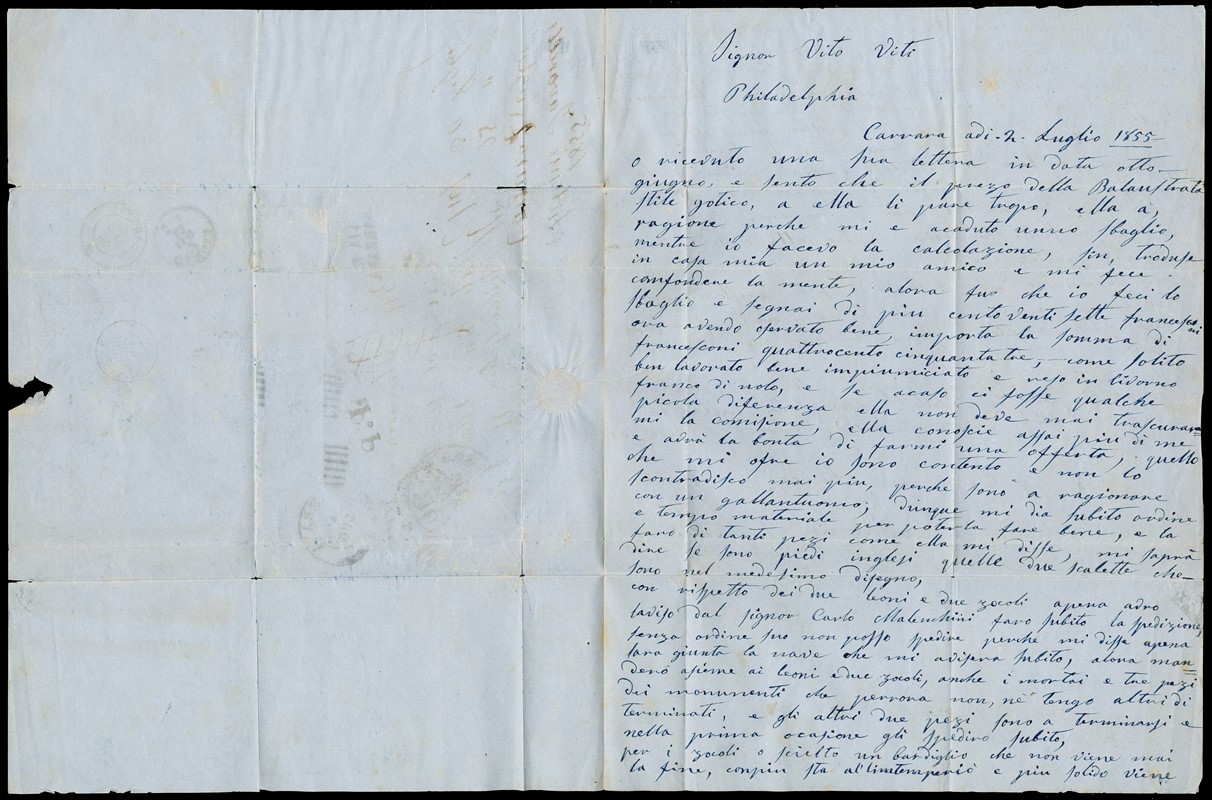 Signor Vito Viti
Philadelphia
Carrara adi 2 Luglio 1855
o ricevuto una sua lettera in data otto
giugno, e sento che il prezo della Balaustrata
stile gotico, a ella li pare tropo, ella a,
ragione perche mi e acaduto unno sbaglio,
mentre io facevo la calcolazione, sin, troduse
in casa mia un mio amico e mi fece
confondere la mente, alora fu che io feci lo
sbaglio e segnai di piu cento venti sette francesconi
ora avendo oservato bene, importa la somma di
francesconi quattrocento cinquanta tre, come solito
ben lavorato bene impiumiciato e reso in livorno
franco di nolo, e se acaso ci fosse qualche
picola diferenza ella non deve mai trascurar=
mi la comisione, ella conoscie assai piu di me
e avrà la bonta di farmi una offerta, quello
che mi ofre io sono contento e non lo
scontradisco mai piu, perche sono a ragionare
con un gallantuomo; dunque mi dia subito ordine
e tempo materiale per poterla fare bene, e la
faro di tanti pezi come ella mi disse, mi saprà
dire se sono piedi inglesi quelle due scalette che
sono nel medesimo disegno,
con rispetto dei due leoni e due zocoli apena avro
laviso dal signor Carlo Malenchini faro subito la spedizione,
senza ordine suo non posso spedire perche mi disse apena
sara giunta la nave che mi avisera subito, alora man=
derò asieme ai leoni e due zocoli, anche i mortai e tre pezi
dei monumenti che perrora non, ne tengo altri di
terminati, e gli altri due pezi sono a terminarsi e
nella prima ocasione gli spediro subito,
per i zocoli o scielto un bardiglio che non viene mai
la fine, conpiu sta al'lintemperiò e piu solido viene